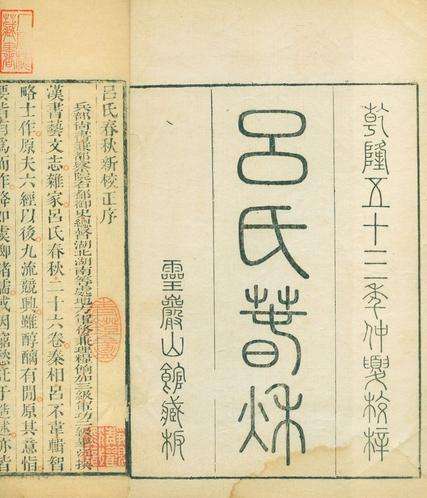 乾隆五十三年仲夏校梓
呂氏春秋
靈巖山館藏板
呂氏春秋新校正序
兵部尚書兼都察院右都御史總督湖北湖南等處地方軍務兼理糧餉加三級軍功
漢書藝文志雜家呂氏春秋二十六卷秦相呂不韋輯智
略士作原夫六經以後九流競興雖醇醨有閒原其意恉
要皆有爲而作降如虞卿諸儒或因窮愁託于造述亦皆